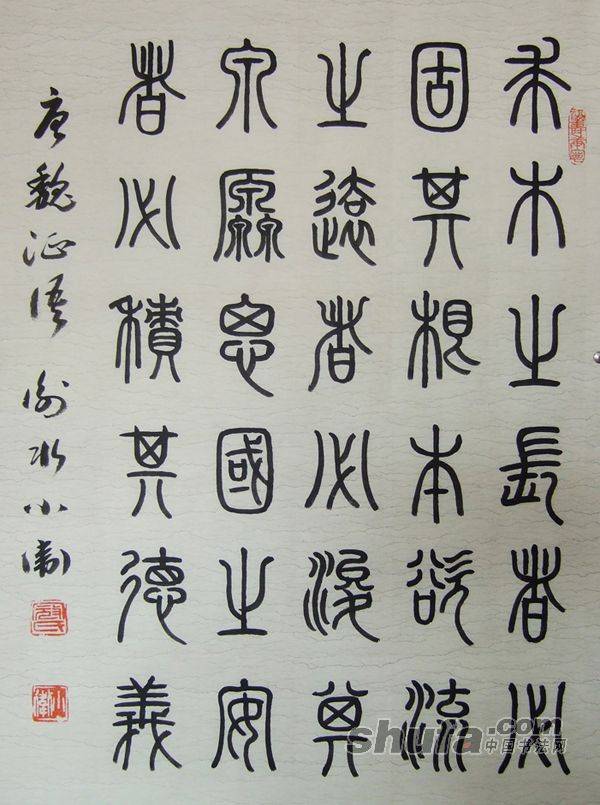 求木之長者必
固其根本欲流
之遠者必浚其
泉源思國之安
者必積其德義
唐魏征語 水小衛
shufa.com
中国书法网